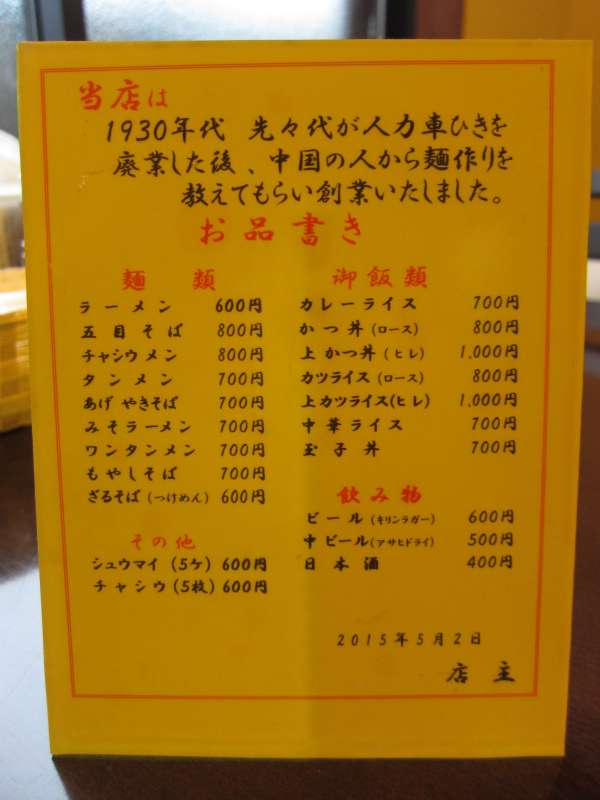 当店は
1930年代 先々代が人力車ひきを
廃業した後、中国の人から麺作りを
教えてもらい創業いたしました。
お品書き
麺類
ラーメン 600円
五目そば 800円
チャシウメン 800円
タンメン 700円
あげやきそば 700円
みそラーメン 700円
ワンタンメン 700円
もやしそば 700円
ざるそば(つけめん) 600円
その他
シュウマイ(5ケ) 600円
チャシウ(5枚) 600円
御飯類
カレーライス 700円
かつ丼(ロース) 800円
上かつ丼(ヒレ) 1,000円
カツライス(ロース) 800円
上カツライス(ヒレ) 1,000円
中華ライス 700円
玉子丼 700円
飲み物
ビール(キリンラガー) 600円
中ビール(アサヒドライ) 500円
日本酒 400円
2015年5月2日
店主